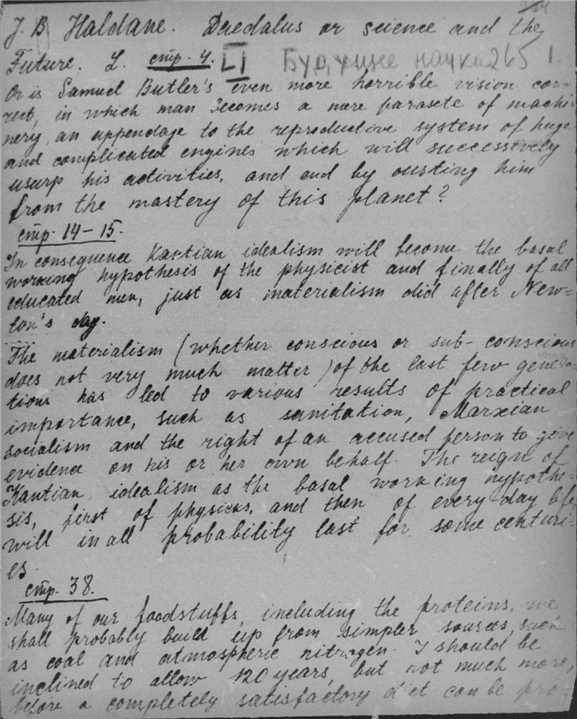 J. B. Haldane. Daedalus or science and the
Future. L. стр. 4. [-] Будущее науки 265 1.
Or is Samuel Butler's even more horrible vision cor-
rect, in which man becomes a mere parasite of machi
nery, an appendage to the reproductive system of huge
and complicated engines which will successively
usurp his activities, and end by ousting him
from the mastery of this planet?
стр. 14-15.
In consequence Kantian idealism will become the basal
working hypothesis of the physicist and finally of all
educated men, just as materialism did after New=
ton's day.
The materialism (whether conscious or sub-conscious
does not very much matter) of the last few genera
tions has led to various results of practical
importance, such as sanitation, Marxian
socialism and the right of an accused person to give
evidence on his or her own behalf. The reign of
Kantian idealism as the basal working hypothe-
sis, first of physics, and then of every-day life
will in all probability last for some centuri-
es.
стр. 38.
Many of our foodstuffs, including the proteins, we
shall probably build up from simpler sources such
as coal and atmospheric nitrogen. I should be
inclined to allow 120 years, but not much more,
before a completely satisfactory diet can be pro-